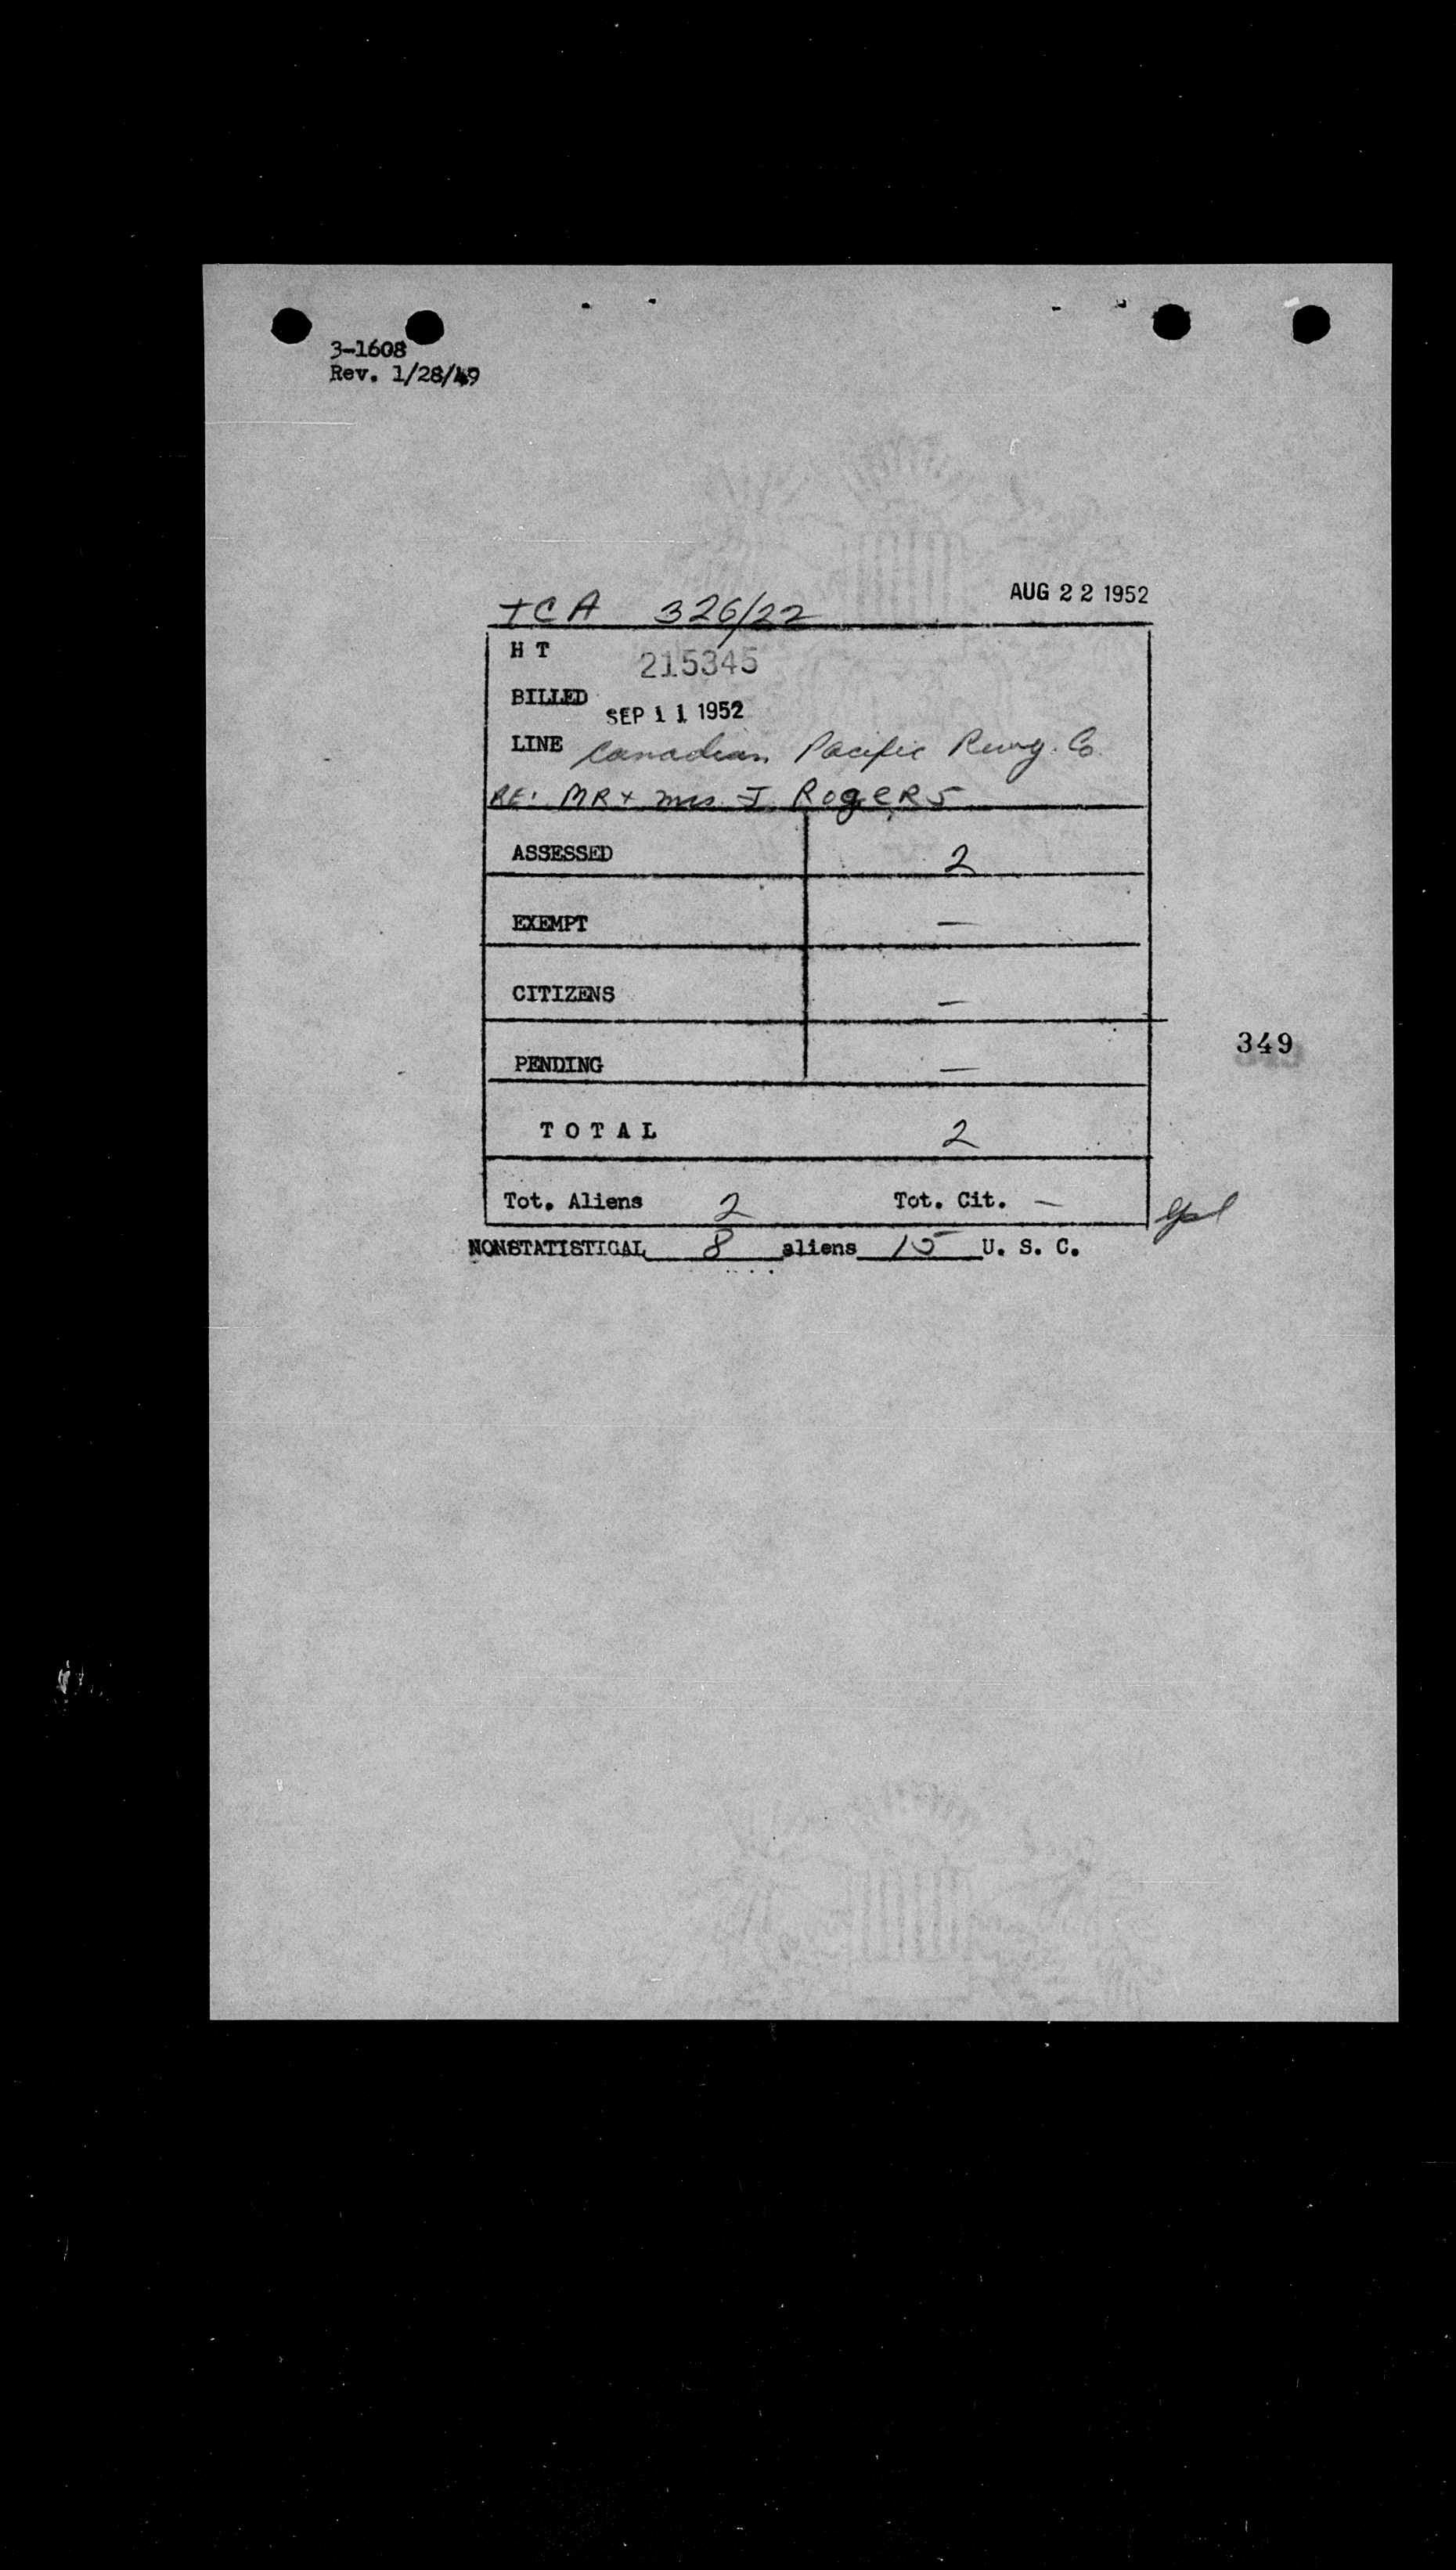 3-1608
Rev. 1/28/49
AUG 22 1952
TCA 326/22
H T 215345
BILLED SEP 11 1952
LINE Canadian Pacific Rwy. Co.
RE: MR + Mrs. J. ROgeRS
ASSESSED 2
EXEMPT —
CITIZENS —
349
PENDING —
TOTAL 2
Tot. Aliens 2 Tot. Cit. —
NONSTATISTICAL 8 aliens 15 U. S. C.